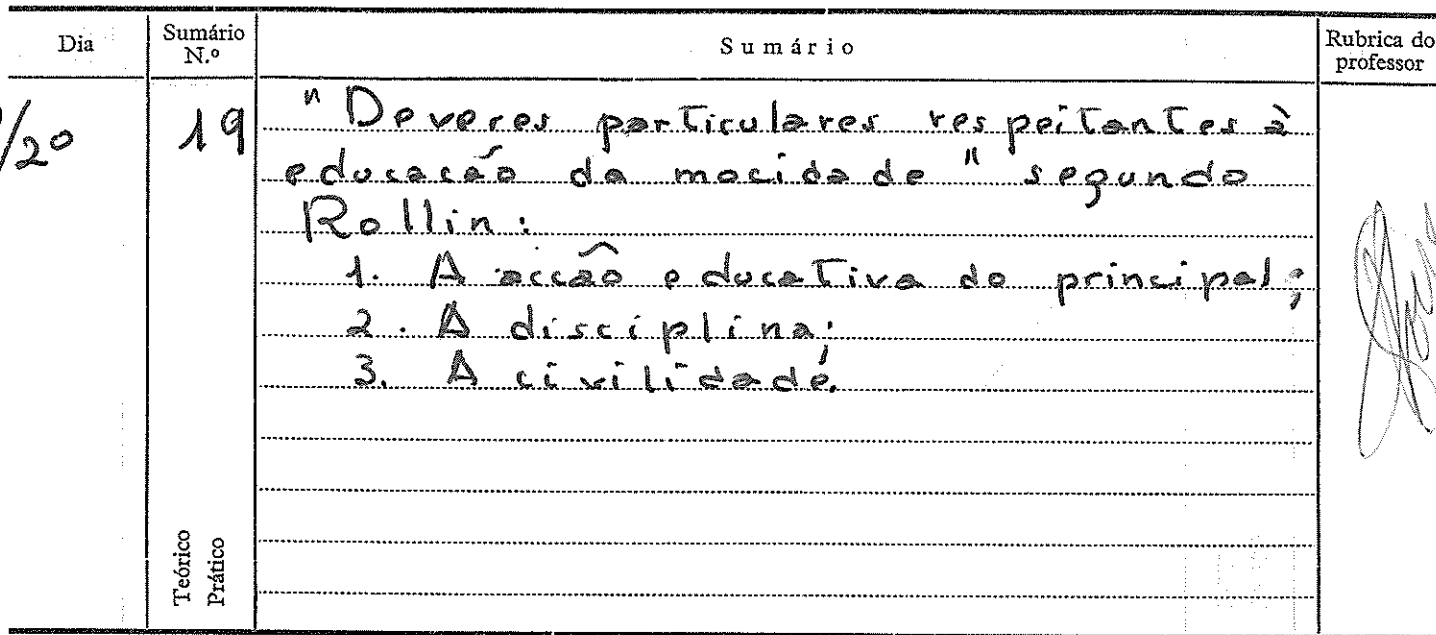 Dia
Sumário N.º
Sumário
Rubrica do professor
/20
19
"Deveres particulares respeitantes à
educação da mocidade" segundo
Rollin:
1. A acção educativa do principal;
2. A disciplina;
3. A civilidade.
Teórico
Prático